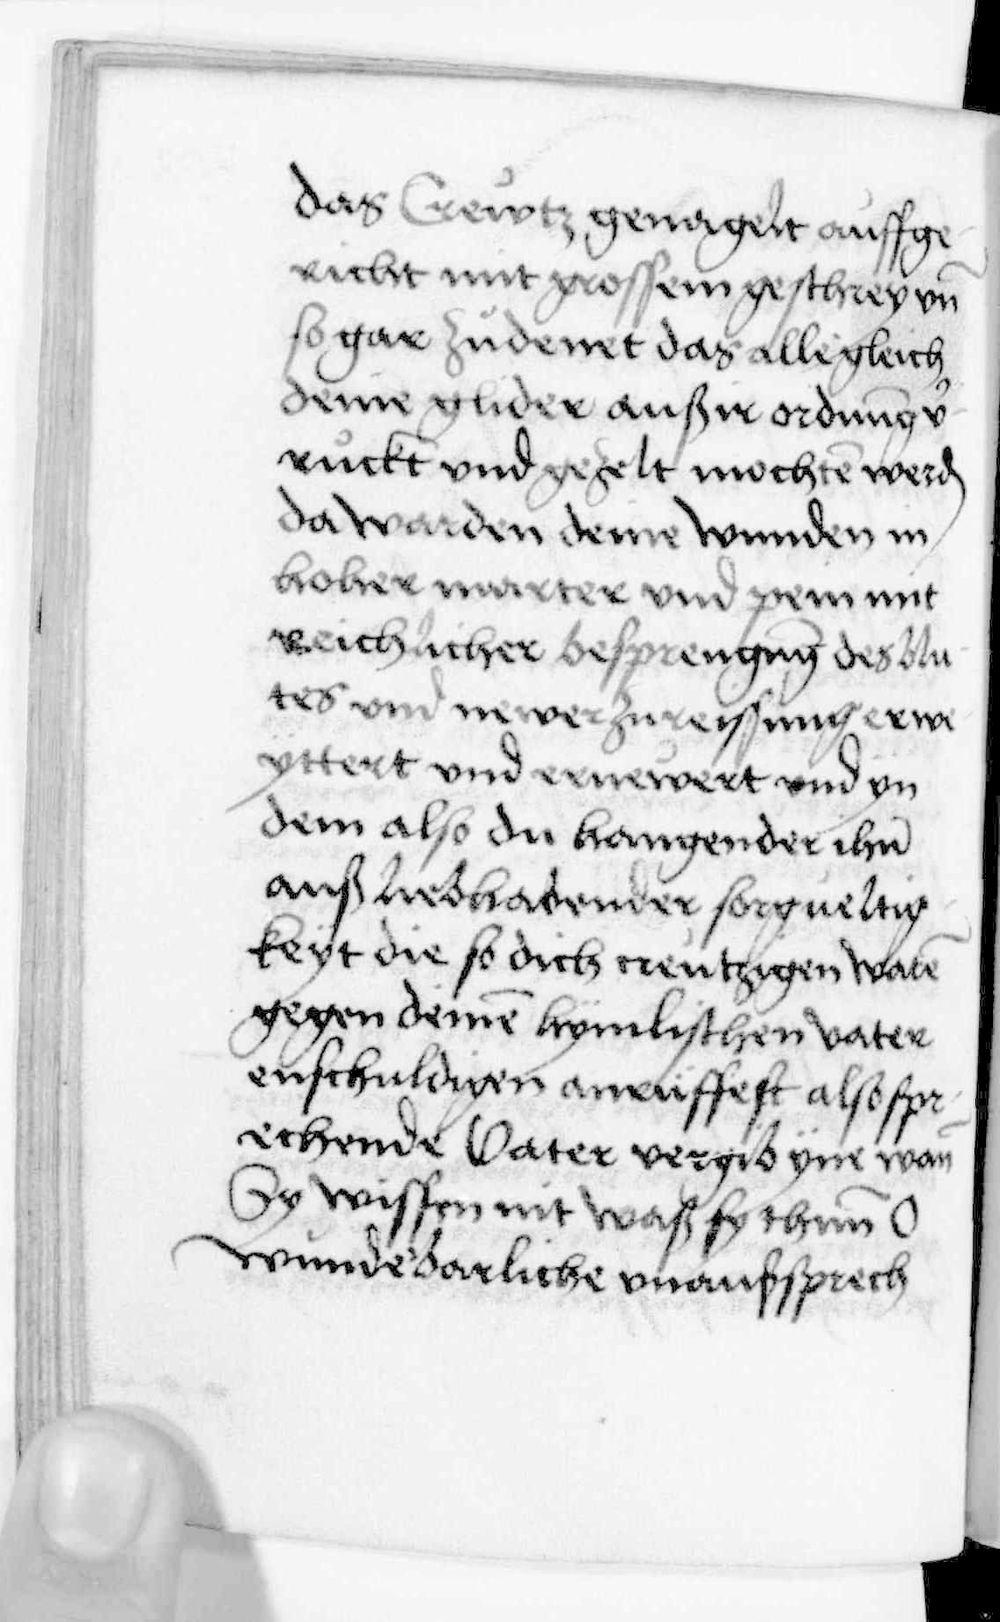 das Creůtz genagelt auffge-
richt mit grossem geschrey vn̄
so gar zůdenet das alle gleich
deine glider auß ir ordnūg v̉-
ruckt vnd gezelt mochtē werdn
da warden deine wunden in
hoher marter vnd pein mit
reichlicher besprengūg des blu-
tes vnd newer zureissung erwe-
yttert vnd erneẅert vnd yn
dem also du hangender ihū
auß liebhabender sorgueltig-
keyt die so dich creutzigen warē
gegen deinē hymlischen vater
enschuldigen anrüffest also spr-
echende Vater vergib yne wan̄
Sy wissen nit waß sy thun̄ O
wunde͛barliche vnaußsprech